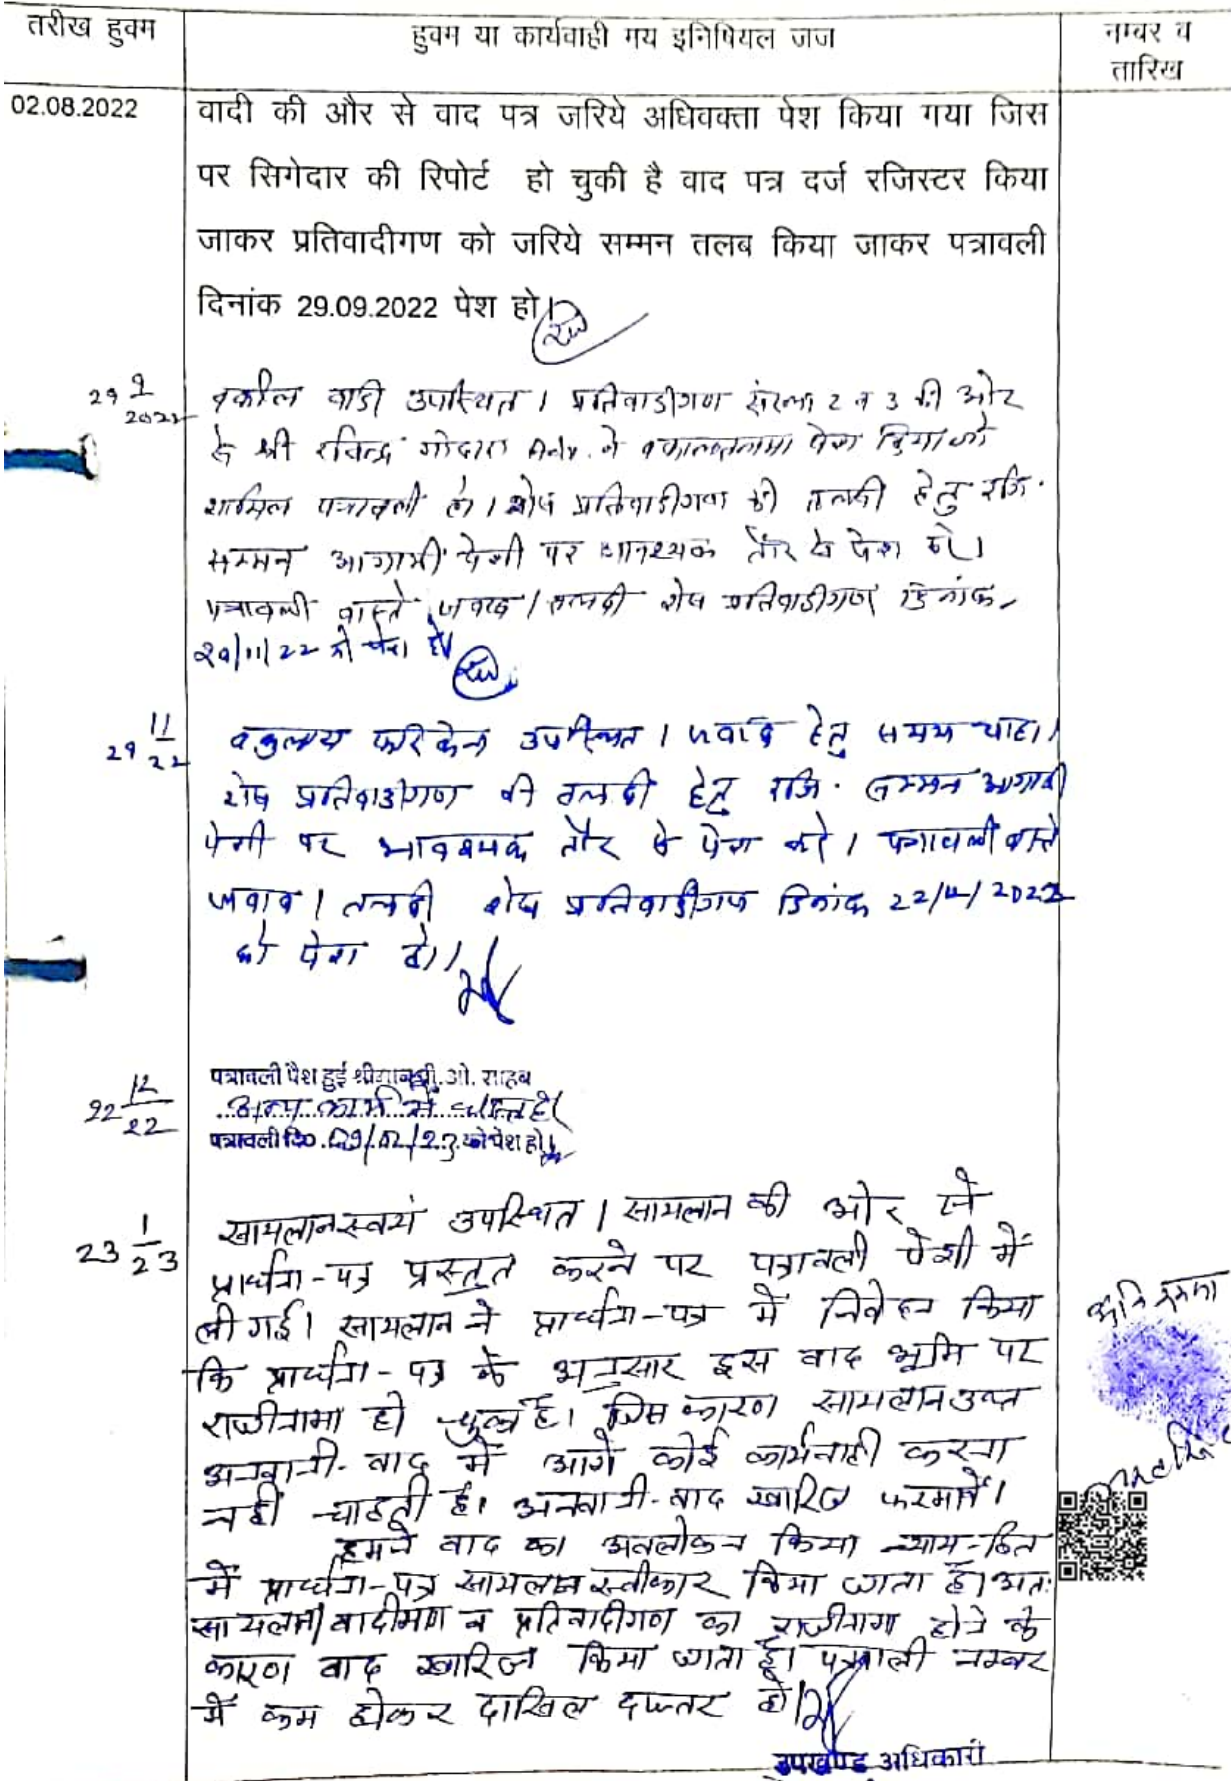 तरीख हुक्म
हुक्म या कार्यवाही मय इनिषियल जज
नम्बर व
तारिख
02.08.2022
वादी की और से वाद पत्र जरिये अधिवक्ता पेश किया गया जिस
पर सिगेदार की रिपोर्ट हो चुकी है वाद पत्र दर्ज रजिस्टर किया
जाकर प्रतिवादीगण को जरिये सम्मन तलब किया जाकर पत्रावली
दिनांक 29.09.2022 पेश हो।
29 9
2022
वकील वादी उपस्थित। प्रतिवादीगण संख्या 2 व 3 की ओर
से श्री रविन्द्र गोदारा Adv. ने वकालतनामा पेश किया जो
शामिल पत्रावली हो। शेष प्रतिवादीगण की तलबी हेतु रजि.
सम्मन आगामी पेशी पर आवश्यक तौर से पेश करे।
पत्रावली वास्ते जवाब / तलबी शेष प्रतिवादीगण दिनांक
29/11/22 को पेश हो।
29 11
22
उपस्थित। जवाब हेतु समय चाहा।
शेष प्रतिवादीगण की तलबी हेतु रजि. सम्मन आगामी
पेशी पर आवश्यक तौर से पेश करे। पत्रावली वास्ते
जवाब / तलबी शेष प्रतिवादीगण दिनांक 22/12/2022
को पेश हो।
22 12
22
पत्रावली पेश हुई श्रीमान ओ. साहब
अन्य कार्य में व्यस्त है।
पत्रावली दि० को पेश हो।
23 1
23
सायलान स्वयं उपस्थित। सायलान की ओर से
प्रार्थना-पत्र प्रस्तुत करने पर पत्रावली पेशी में
ली गई। सायलान ने प्रार्थना-पत्र में निवेदन किया
कि प्रार्थना-पत्र के अनुसार इस वाद भूमि पर
राजीनामा हो चुका है। जिस कारण सायलान उक्त
अनवानी-वाद में आगे कोई कार्यवाही करना
नहीं चाहती है। अनवानी-वाद खारिज फरमावें।
हमने वाद का अवलोकन किया न्याय-हित
में प्रार्थना-पत्र सायलान स्वीकार किया जाता है। अतः
सायलान/वादीगण व प्रतिवादीगण का राजीनामा होने के
कारण वाद खारिज किया जाता है। पत्रावली नम्बर
से कम होकर दाखिल दफ्तर हो।
उपखण्ड अधिकारी